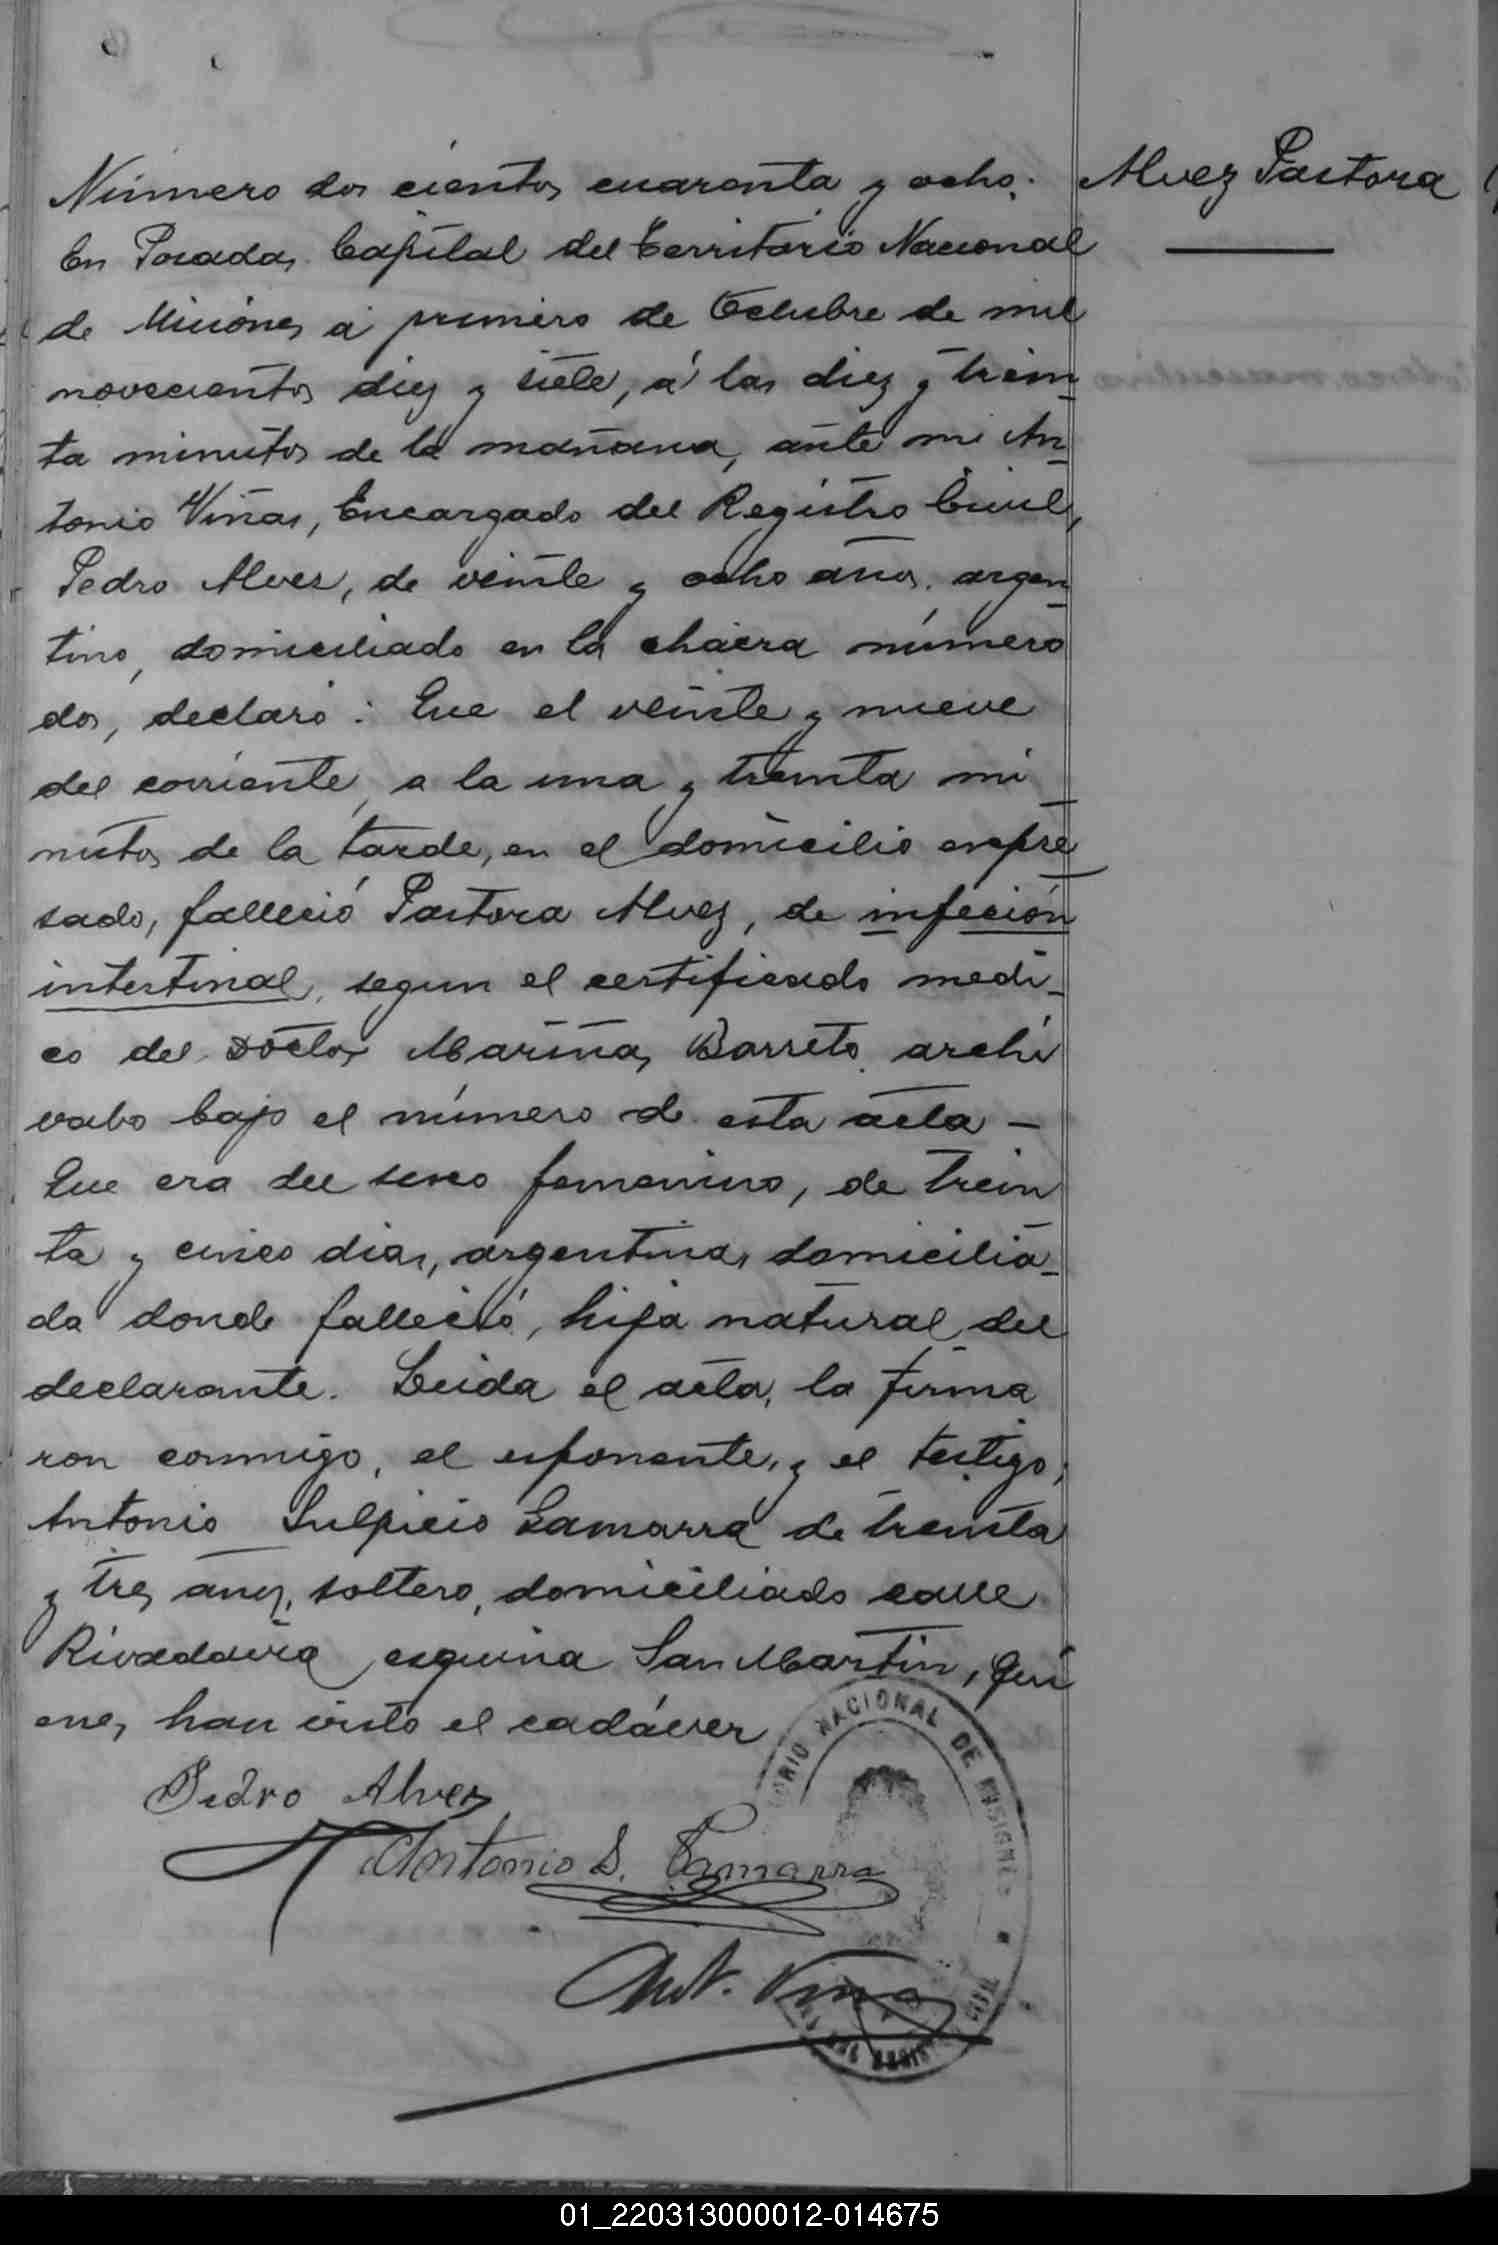 Número dos cientos cuarenta y ocho.
Alvez Pastora
En Posadas Capital del Territorio Nacional
de Misiones á primero de Octubre de mil
novecientos diez y siete, á las diez y trein
ta minutos de la mañana, ante mi An
tonio Viñas, Encargado del Registro Civil,
Pedro Alvez, de veinte y ocho años, argen
tino, domiciliado en la chacra número
dos, declaró: Que el veinte y nueve
del corriente, a la una y treinta mi
nutos de la tarde, en el domicilio expre
sado, falleció Pastora Alvez, de infeción
intestinal, segun el certificado medi-
co del Doctor Mariña, Barreto archi
vabo bajo el número de esta acta -
Que era del sexo femenino, de trein
ta y cinco dias, argentina, domicilia-
da donde falleció, hija natural del
declarante. Leida el acta, la firma
ron conmigo, el exponente, y el testigo,
Antonio Sulpicio Gamarra de treinta
y tres años, soltero, domiciliado calle
Rivadavia esquina San Martin, qui
enes han visto el cadáver
Pedro Alvez
Antonio S. Gamarra
Ant. Viñas
NACIONAL DE MISIONES
CIVIL
01_220313000012-014675